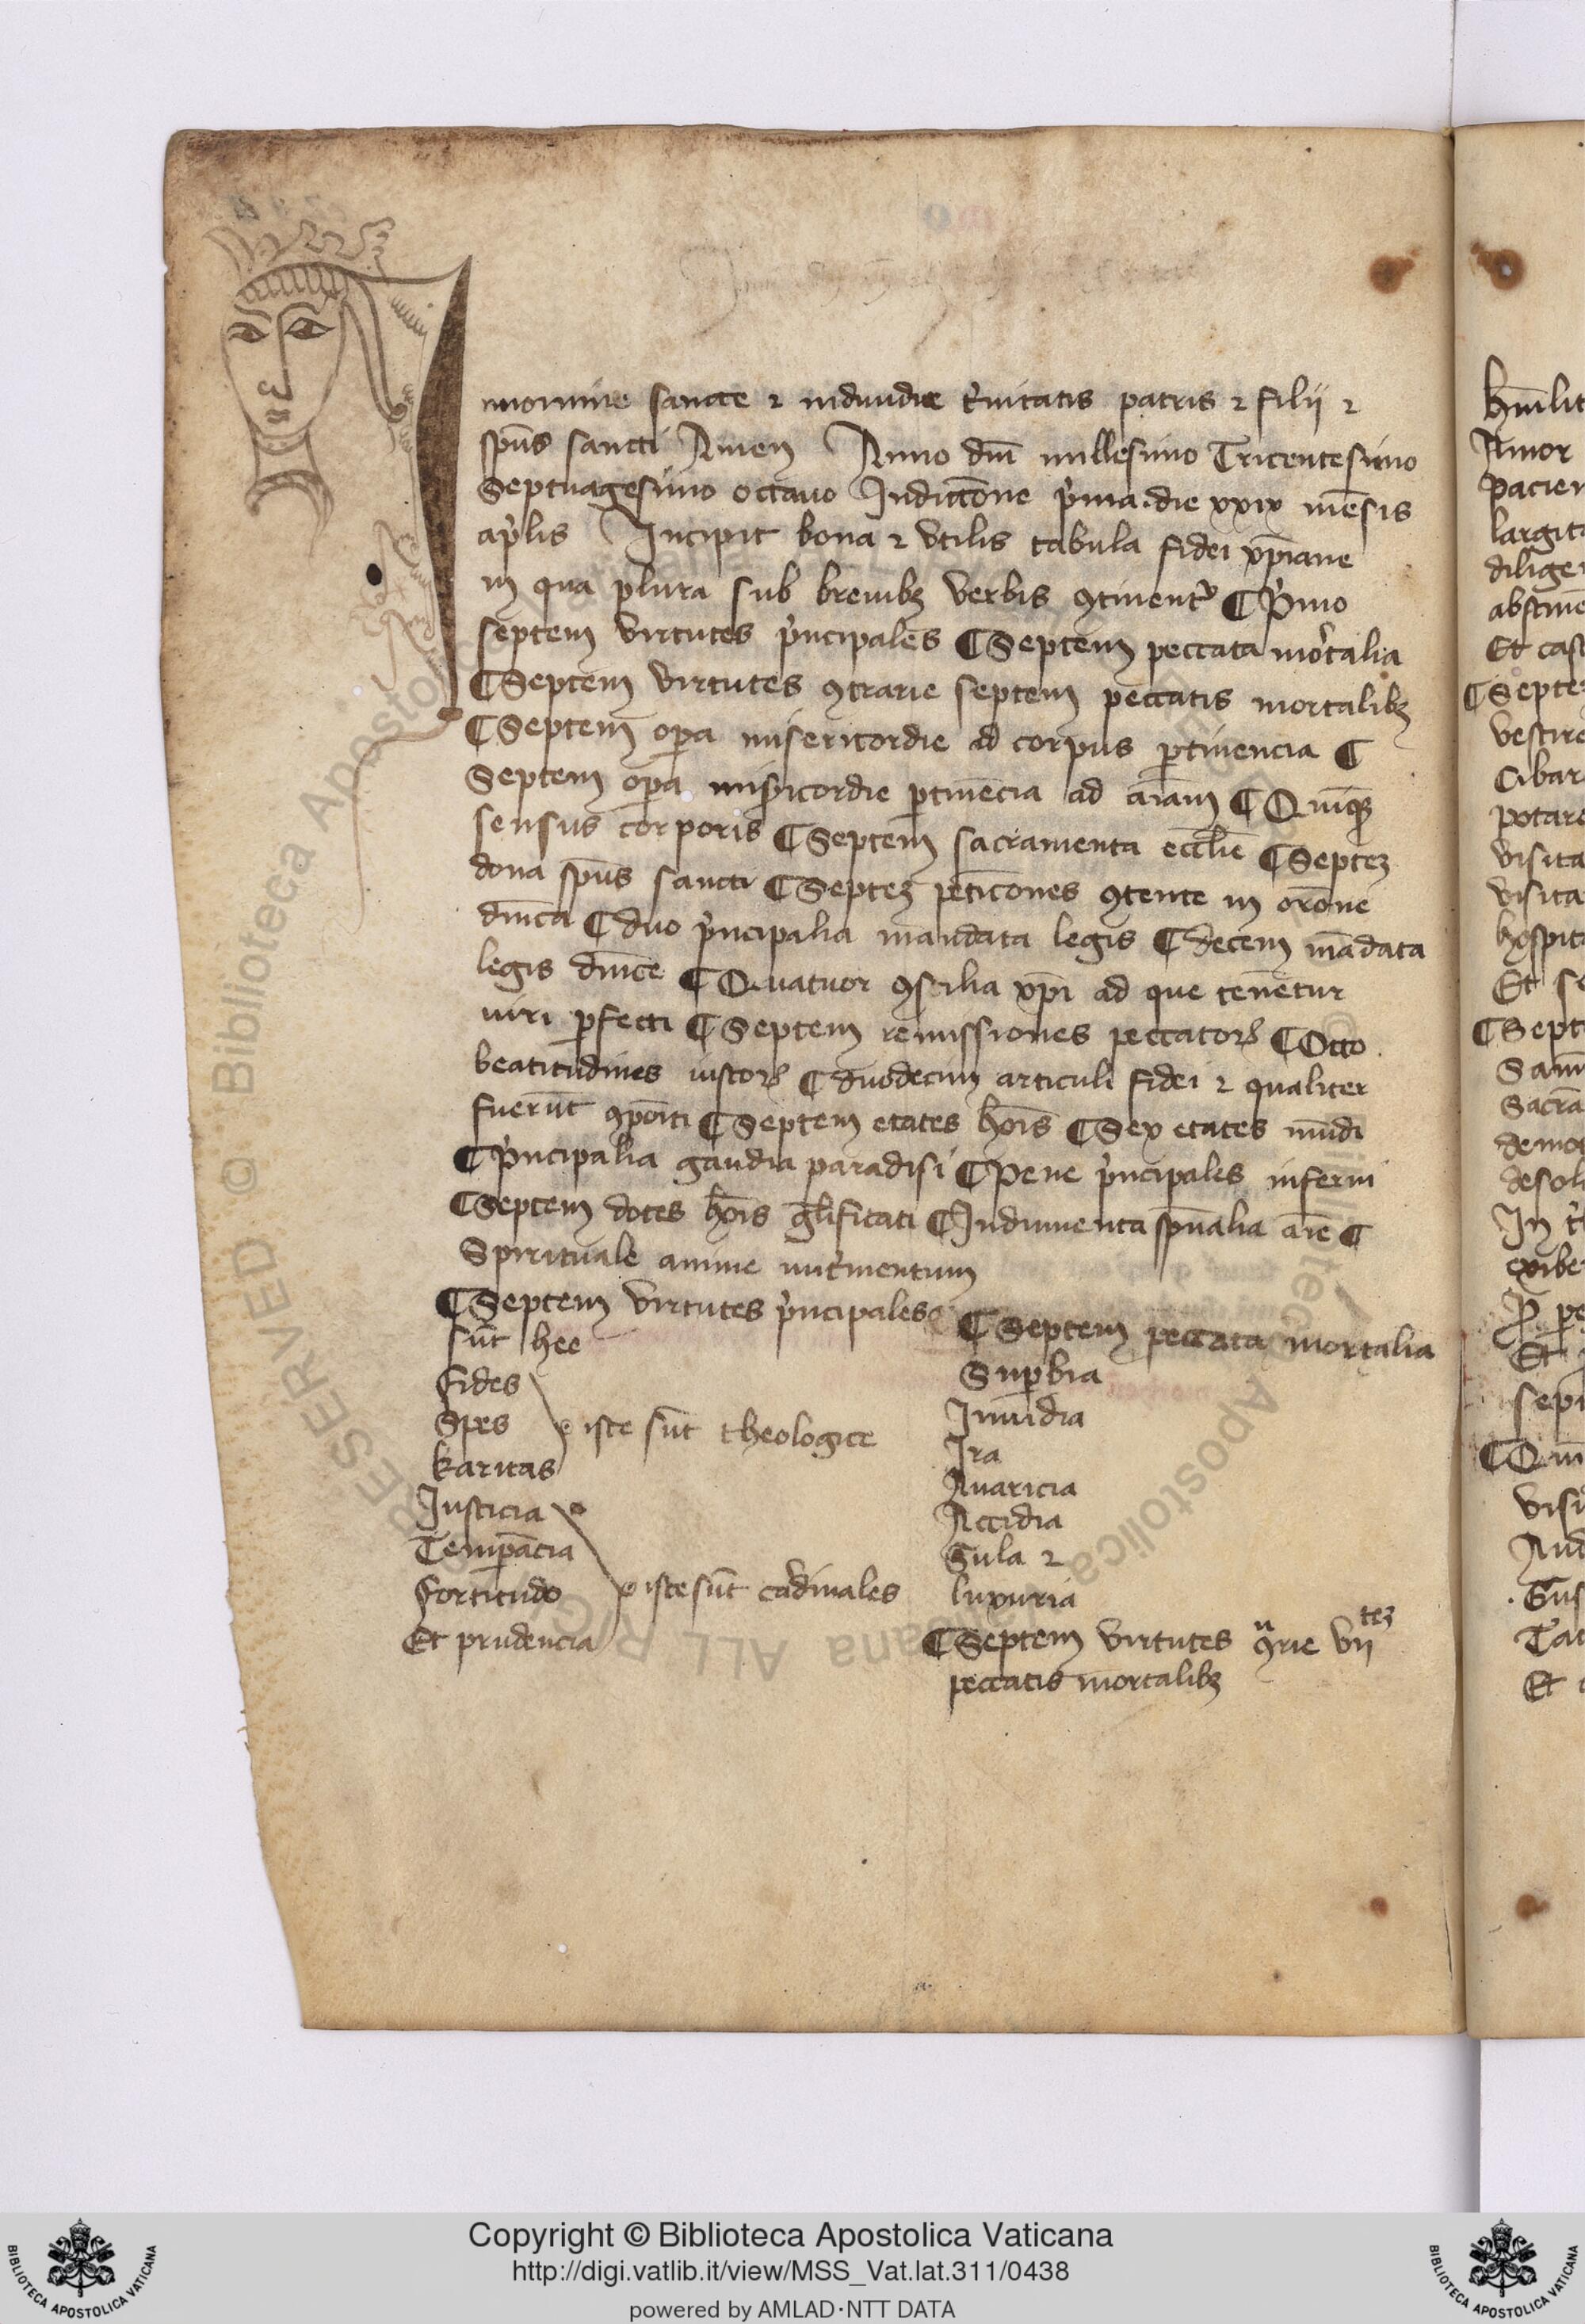 Innomine sancte ⁊ indiuidue t'nitatis patris ⁊ filij ⁊
sp̄us sancti Amen Anno dn̄i millesimo Tricentesimo
Septuagesimo octauo Indictōne p'ma. die xxix mēsis
ap'lis Incipit bona ⁊ vtilis tabula fidei xp̄iane
in qua plura sub breuibꝫ verbis ꝯtinent᷑ ¶ P'mo
septem virtutes p'ncipales ¶ Septem peccata mortalia
¶ Septem virtutes ꝯtrarie septem peccatis mortalibꝫ
¶ Septem oꝑa misericordie ad corpus ꝑtinencia ¶
Septem oꝑa mis̄icordie ꝑtinēcia ad aīam ¶ Quinqꝫ
sensus corporis ¶ Septem sacramenta eccl̄ie ¶ Septeꝫ
dona sp̄us sancti ¶ Septeꝫ peticōnes ꝯtente in orōne
dn̄ica ¶ duo p'ncipalia mandata legis ¶ decem mādata
legis dn̄ice ¶ Quatuor ꝯsilia xp̄i ad que tenētur
uiri ꝑfecti ¶ Septem remissiones peccatoꝝ ¶ Octo
beatitudines iustoꝝ ¶ duodecim articuli fidei ⁊ qualiter
fuerūt ꝯpoīti ¶ Septem etates hoīs ¶ Sex etates mūdi
¶ P'ncipalia gaudia paradisi ¶ Pene p'ncipales inferni
¶ Septem dotes hoīs gl̄ificati ¶ Indumenta sp̄ualia aīe ¶
Spirituale anime nut'mentum
¶ Septem virtutes p'ncipales
sūt hee
fides
Spes
karitas
iste sūt theologice
Justicia
Temꝑācia
fortitudo
Et prudencia
iste sūt cardinales
¶ Septem peccata mortalia
Suꝑbia
Inuidia
Ira
Auaricia
Accidia
Gula ⁊
luxuria
¶ Septem virtutes ꝯrie vii
peccatis mortalibꝫ
Amor
Copyright © Biblioteca Apostolica Vaticana
http://digi.vatlib.it/view/MSS_Vat.lat.311/0438
powered by AMLAD·NTT DATA
BIBLIOTECA APOSTOLICA VATICANA
BIBLIOTECA APOSTOLICA VATICANA